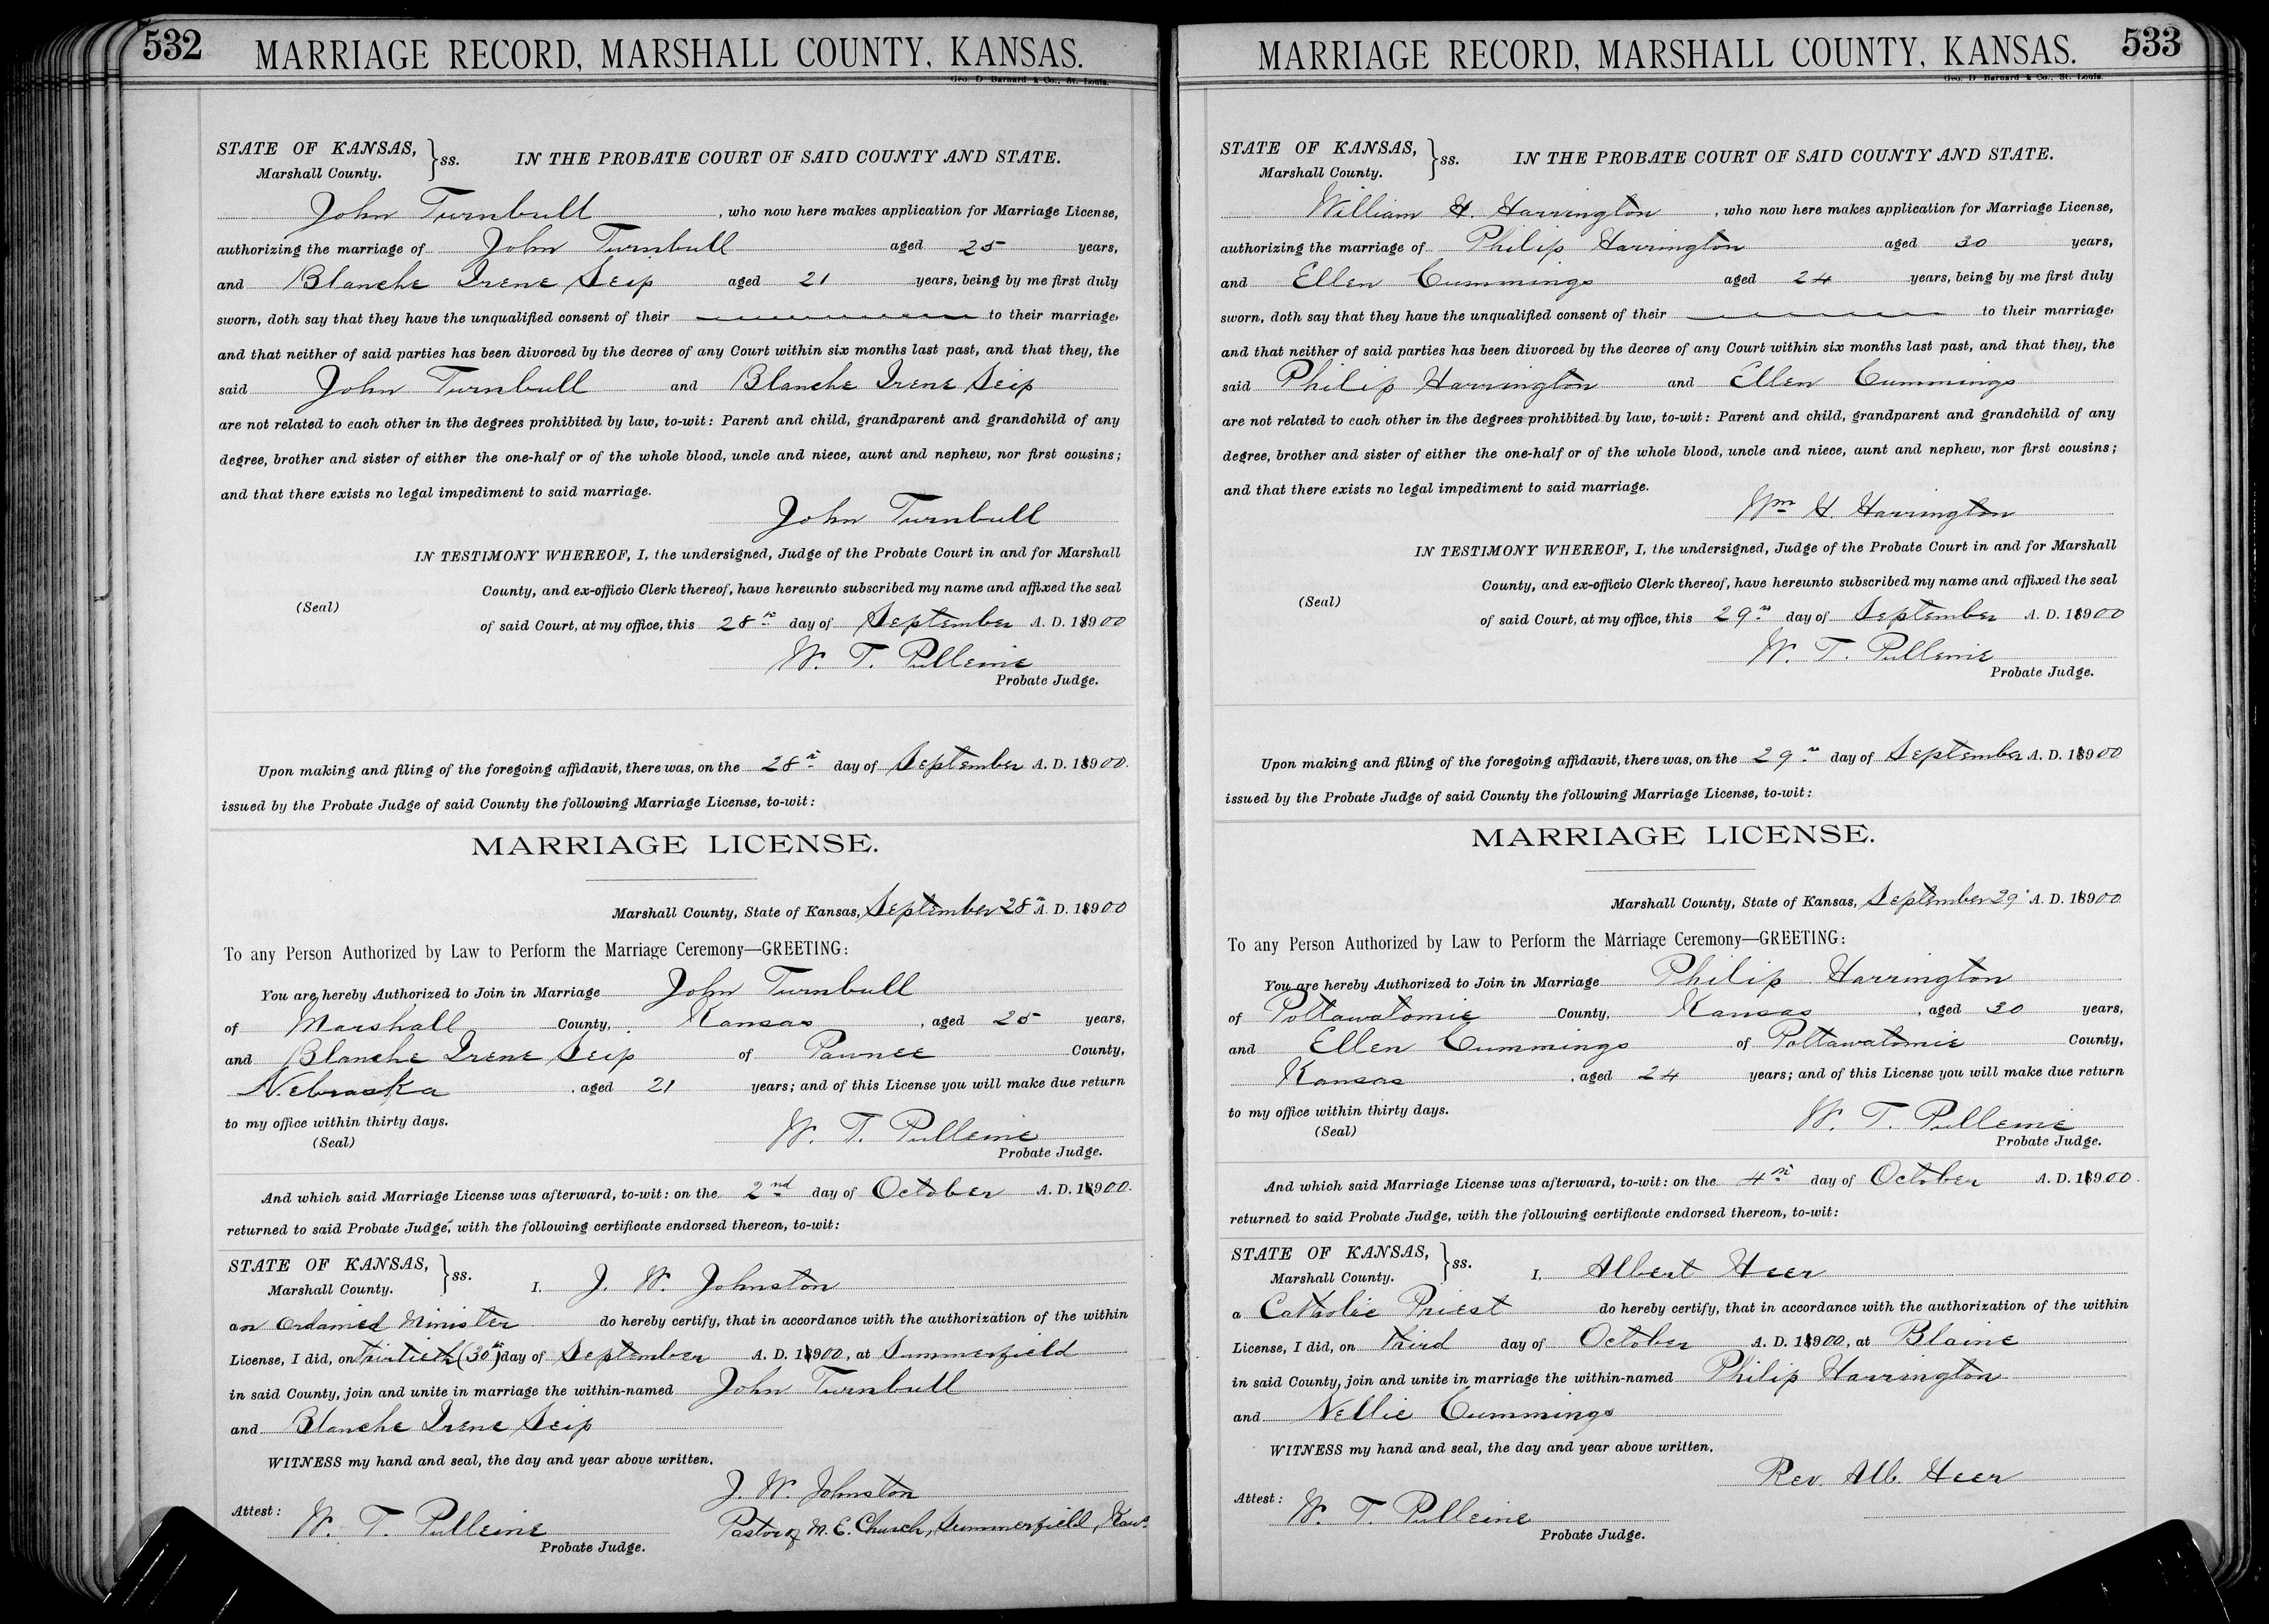 532
MARRIAGE RECORD, MARSHALL COUNTY, KANSAS.
Geo. D. Barnard & Co., St. Louis.
STATE OF KANSAS,
Marshall County. } ss. IN THE PROBATE COURT OF SAID COUNTY AND STATE.
John Turnbull, who now here makes application for Marriage License,
authorizing the marriage of John Turnbull aged 25 years,
and Blanche Irene Seip aged 21 years, being by me first duly
sworn, doth say that they have the unqualified consent of their to their marriage,
and that neither of said parties has been divorced by the decree of any Court within six months last past, and that they, the
said John Turnbull and Blanche Irene Seip
are not related to each other in the degrees prohibited by law, to-wit: Parent and child, grandparent and grandchild of any
degree, brother and sister of either the one-half or of the whole blood, uncle and niece, aunt and nephew, nor first cousins;
and that there exists no legal impediment to said marriage.
John Turnbull
IN TESTIMONY WHEREOF, I, the undersigned, Judge of the Probate Court in and for Marshall
County, and ex-officio Clerk thereof, have hereunto subscribed my name and affixed the seal
(Seal)
of said Court, at my office, this 28th day of September A. D. 18900
W. T. Pulleine
Probate Judge.
Upon making and filing of the foregoing affidavit, there was, on the 28th day of September A. D. 18900.
issued by the Probate Judge of said County the following Marriage License, to-wit:
MARRIAGE LICENSE.
Marshall County, State of Kansas, September 28th A. D. 18900
To any Person Authorized by Law to Perform the Marriage Ceremony—GREETING:
You are hereby Authorized to Join in Marriage John Turnbull
of Marshall County, Kansas, aged 25 years,
and Blanche Irene Seip of Pawnee County,
Nebraska, aged 21 years; and of this License you will make due return
to my office within thirty days.
(Seal)
W. T. Pulleine
Probate Judge.
And which said Marriage License was afterward, to-wit: on the 2nd day of October A. D. 18900.
returned to said Probate Judge, with the following certificate endorsed thereon, to-wit:
STATE OF KANSAS,
Marshall County. } ss. I, J. W. Johnston
an Ordained Minister do hereby certify, that in accordance with the authorization of the within
License, I did, on thirtieth (30th) day of September A. D. 18900, at Summerfield
in said County, join and unite in marriage the within-named John Turnbull
and Blanche Irene Seip
WITNESS my hand and seal, the day and year above written.
J. W. Johnston
Attest: W. T. Pulleine
Pastor of M. E. Church, Summerfield, Kans.
Probate Judge.
533
MARRIAGE RECORD, MARSHALL COUNTY, KANSAS.
Geo. D. Barnard & Co., St. Louis.
STATE OF KANSAS,
Marshall County. } ss. IN THE PROBATE COURT OF SAID COUNTY AND STATE.
William H. Harrington, who now here makes application for Marriage License,
authorizing the marriage of Philip Harrington aged 30 years,
and Ellen Cummings aged 24 years, being by me first duly
sworn, doth say that they have the unqualified consent of their to their marriage,
and that neither of said parties has been divorced by the decree of any Court within six months last past, and that they, the
said Philip Harrington and Ellen Cummings
are not related to each other in the degrees prohibited by law, to-wit: Parent and child, grandparent and grandchild of any
degree, brother and sister of either the one-half or of the whole blood, uncle and niece, aunt and nephew, nor first cousins;
and that there exists no legal impediment to said marriage.
Wm H. Harrington
IN TESTIMONY WHEREOF, I, the undersigned, Judge of the Probate Court in and for Marshall
County, and ex-officio Clerk thereof, have hereunto subscribed my name and affixed the seal
(Seal)
of said Court, at my office, this 29th day of September A. D. 18900
W. T. Pulleine
Probate Judge.
Upon making and filing of the foregoing affidavit, there was, on the 29th day of September A. D. 18900
issued by the Probate Judge of said County the following Marriage License, to-wit:
MARRIAGE LICENSE.
Marshall County, State of Kansas, September 29th A. D. 18900
To any Person Authorized by Law to Perform the Marriage Ceremony—GREETING:
You are hereby Authorized to Join in Marriage Philip Harrington
of Pottawatomie County, Kansas, aged 30 years,
and Ellen Cummings of Pottawatomie County,
Kansas, aged 24 years; and of this License you will make due return
to my office within thirty days.
(Seal)
W. T. Pulleine
Probate Judge.
And which said Marriage License was afterward, to-wit: on the 4th day of October A. D. 18900.
returned to said Probate Judge, with the following certificate endorsed thereon, to-wit:
STATE OF KANSAS,
Marshall County. } ss. I, Albert Heer
a Catholic Priest do hereby certify, that in accordance with the authorization of the within
License, I did, on third day of October A. D. 18900, at Blaine
in said County, join and unite in marriage the within-named Philip Harrington
and Nellie Cummings
WITNESS my hand and seal, the day and year above written.
Rev. Alb. Heer
Attest: W. T. Pulleine
Probate Judge.